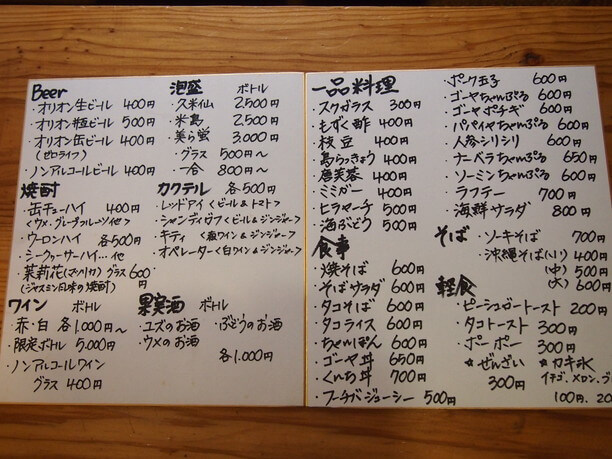 Beer
・オリオン生ビール 400円
・オリオン瓶ビール 500円
・オリオン缶ビール 400円
(ゼロライフ)
・ノンアルコールビール 400円
泡盛 ボトル
・久米仙 2,500円
・米島 2,500円
・美ら蛍 3,000円
・グラス 500円〜
・一合 800円〜
焼酎
・缶チューハイ 400円
<ウメ、グレープフルーツイセ>
・ウーロンハイ 各500円
・シークヮーサーハイ…イセ
・茉莉花(マツリカ) グラス 600円
(ジャスミン風味の焼酎)
カクテル 各500円
・レッドアイ <ビール&トマト>
・シャンディガフ <ビール&ジンジャー>
・キティ <赤ワイン&ジンジャー>
・オペレーター <白ワイン&ジンジャー>
ワイン ボトル
・赤・白 各1,000円〜
・限定ボトル 5,000円
・ノンアルコールワイン
グラス 400円
果実酒 ボトル
・ユズのお酒 ・ぶどうのお酒
・ウメのお酒
各1,000円
一品料理
・スクガラス 300円
・もずく酢 400円
・枝豆 400円
・島らっきょう 400円
・唐芙蓉 400円
・ミミガー 400円
・ヒラヤーチ 500円
・海ぶどう 500円
食事
・焼そば 600円
・そばサラダ 600円
・タコそば 600円
・タコライス 600円
・ちゃんぽん 600円
・ゴーヤ丼 650円
・くんち丼 700円
・フーチバジューシー 500円
・ポーク玉子 600円
・ゴーヤちゃんぷる 600円
・ゴーヤポチギ 600円
・パパイヤちゃんぷる 600円
・人参シリシリ 600円
・ナーベラちゃんぷる 650円
・ソーミンちゃんぷる 600円
・ラフテー 700円
・海鮮サラダ 800円
そば ・ソーキそば 700円
・沖縄そば(小) 400円
(中) 500円
(大) 600円
軽食
・ピーシュガートースト 200円
・タコトースト 300円
・ポーポー 300円
☆ぜんざい 300円
☆カキ氷
イチゴ、メロン、ブ
100円、20